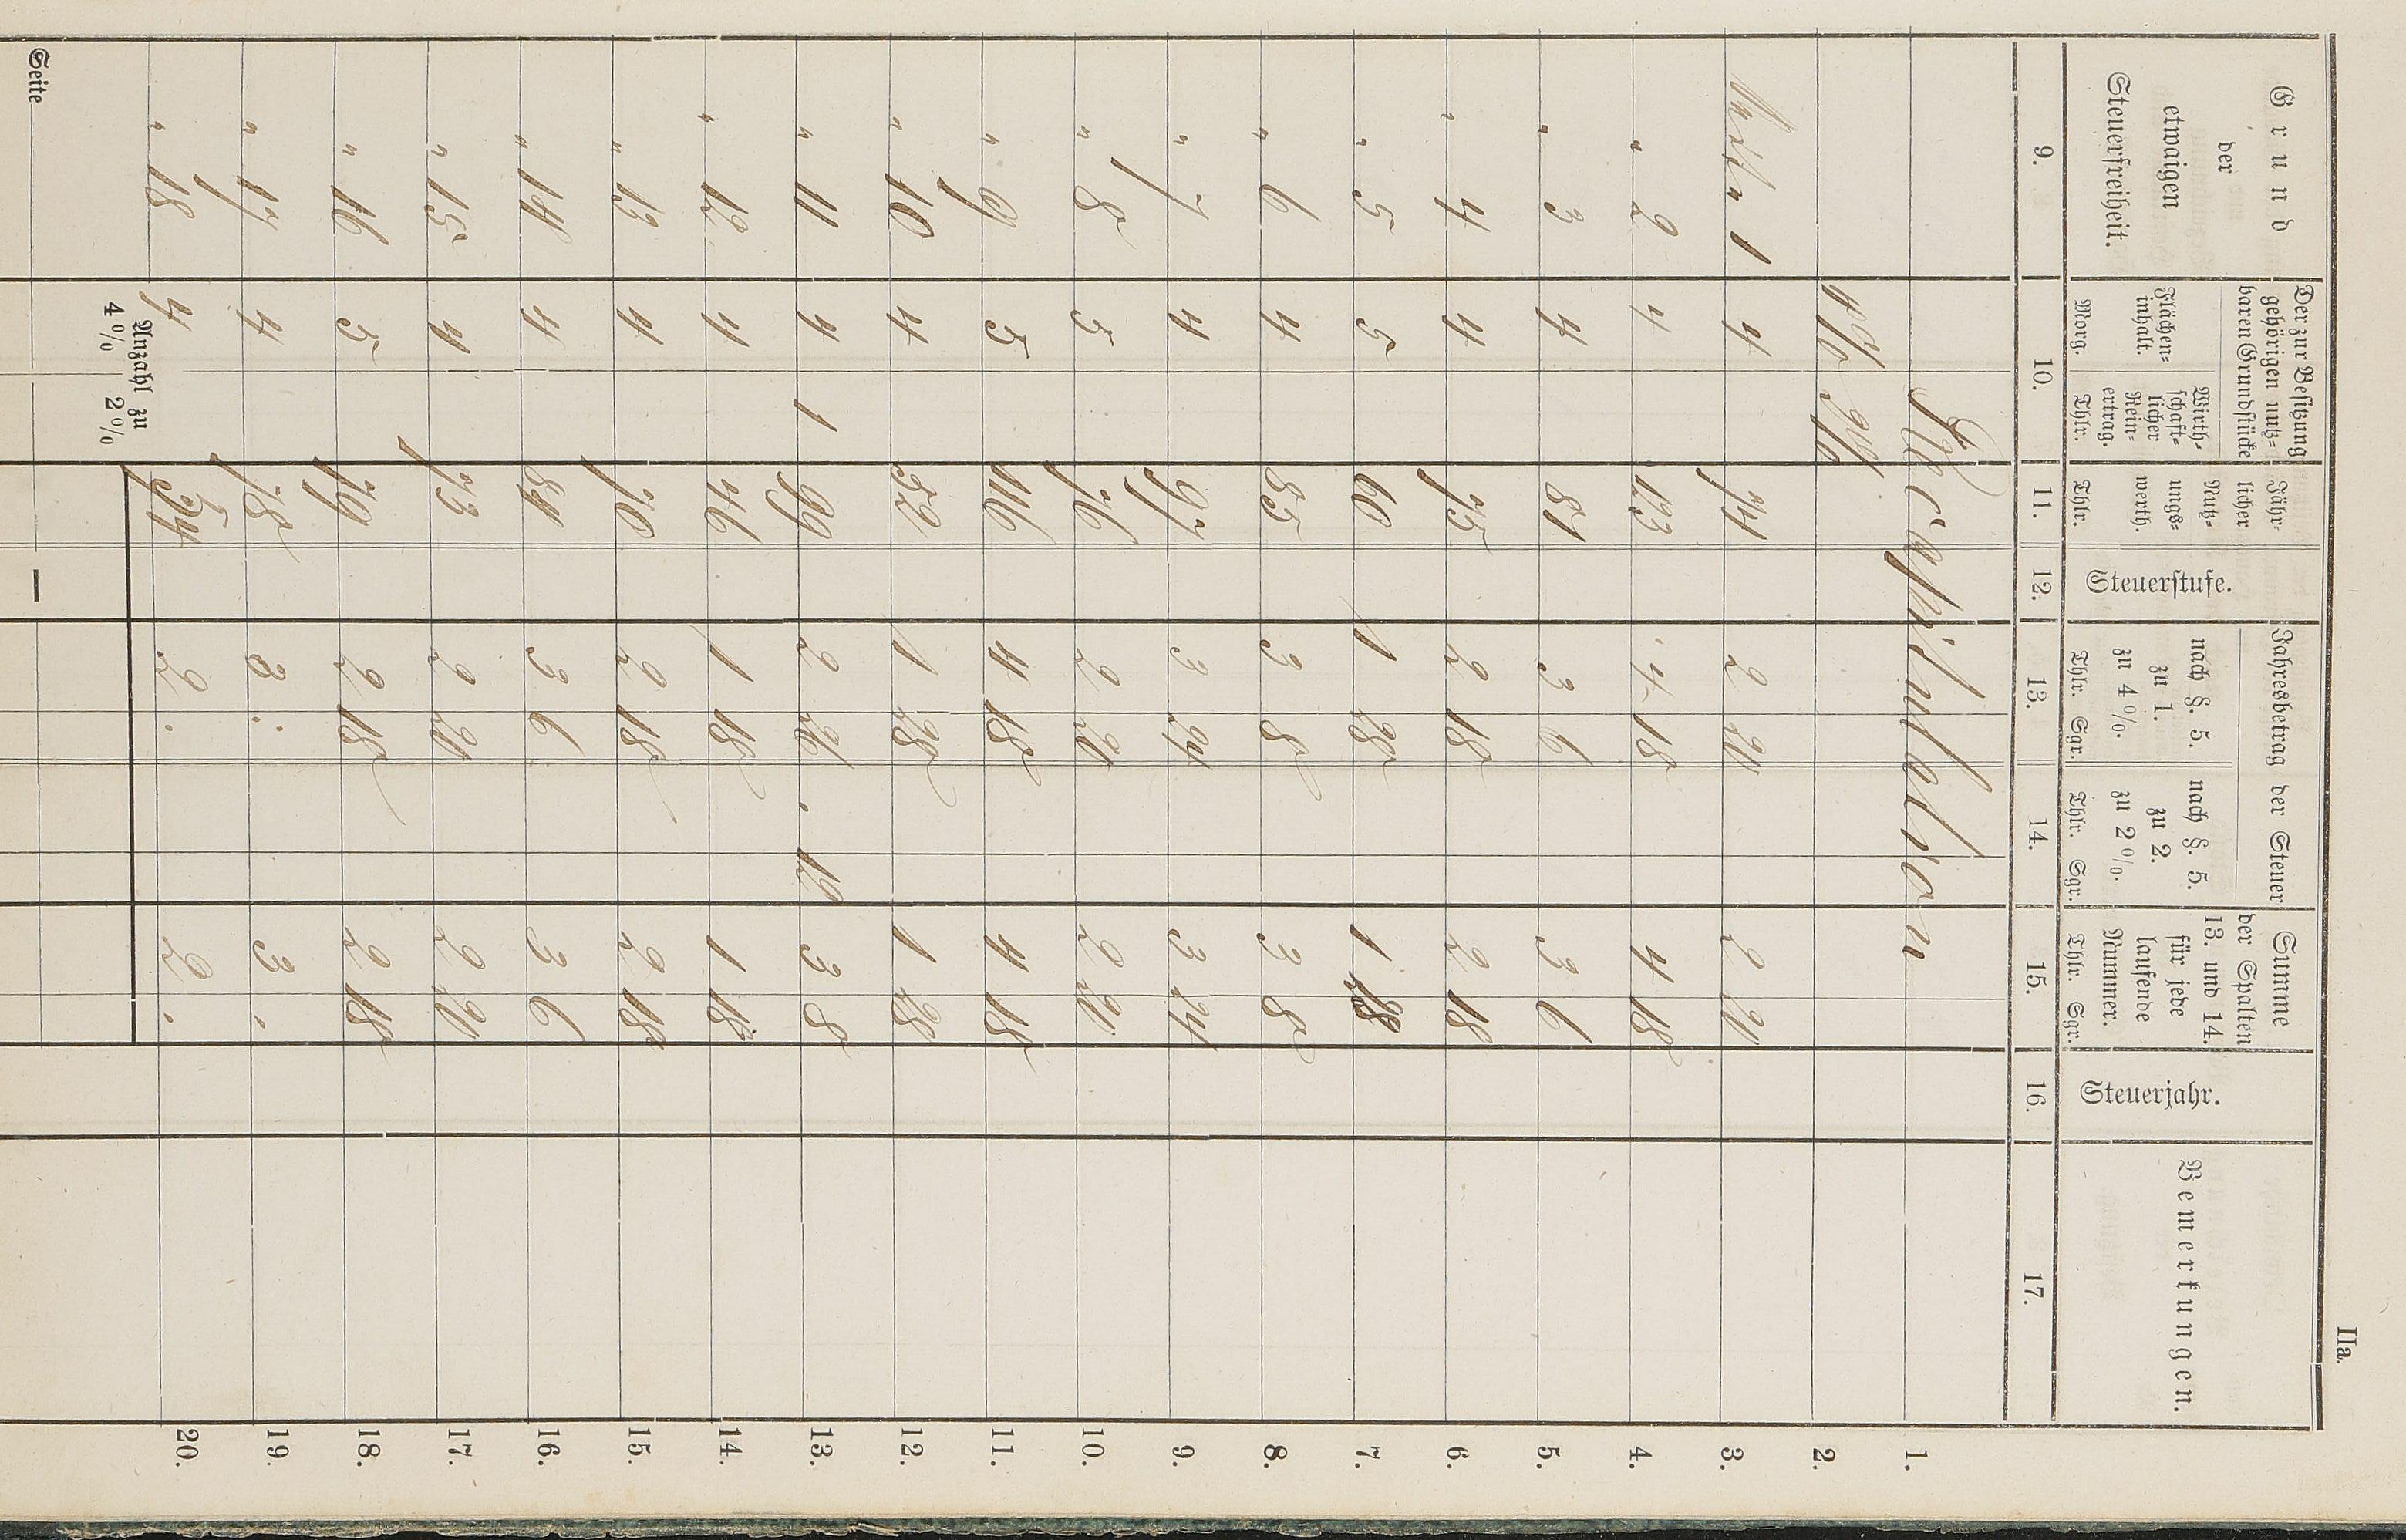 IIa.
Grund
der
etwaigen
Steuerfreiheit.
Der zur Besitzung
gehörigen nutz-
baren Grundstücke
Flächen-
inhalt.
Morg.
Wirth-
schaft-
licher
Rein-
ertrag.
Thlr.
Jähr-
licher
Nutz-
ungs-
werth.
Thlr.
Steuerstufe.
Jahresbetrag der Steuer
nach §. 5.
zu 1.
zu 4%.
Thlr. Sgr.
nach §. 5.
zu 2.
zu 2%.
Thlr. Sgr.
Summe
der Spalten
13. und 14.
für jede
laufende
Nummer.
Thlr. Sgr.
Steuerjahr.
Bemerkungen.
9. 10. 11. 12. 13. 14. 15. 16. 17.
Recapitulation 1.
4% 2% 2.
Seite 1 4 74 2 24 2 24 3.
" 2 4 123 4 18 4 18 4.
" 3 4 81 3 6 3 6 5.
" 4 4 75 2 18 2 18 6.
" 5 5 60 1 28 1 28 7.
" 6 4 85 3 8 3 8 8.
" 7 4 97 3 24 3 24 9.
" 8 5 76 2 20 2 20 10.
" 9 5 116 4 18 4 18 11.
" 10 4 52 1 28 1 28 12.
" 11 4 1 99 2 26 . 12 3 8 13.
" 12 4 46 1 18 1 18 14.
" 13 4 70 2 18 2 18 15.
" 14 4 84 3 6 3 6 16.
" 15 4 73 2 20 2 20 17.
" 16 5 79 2 18 2 18 18.
" 17 4 78 3 . 3 . 19.
" 18 4 54 2 . 2 . 20.
Anzahl zu
4% 2%
Seite —